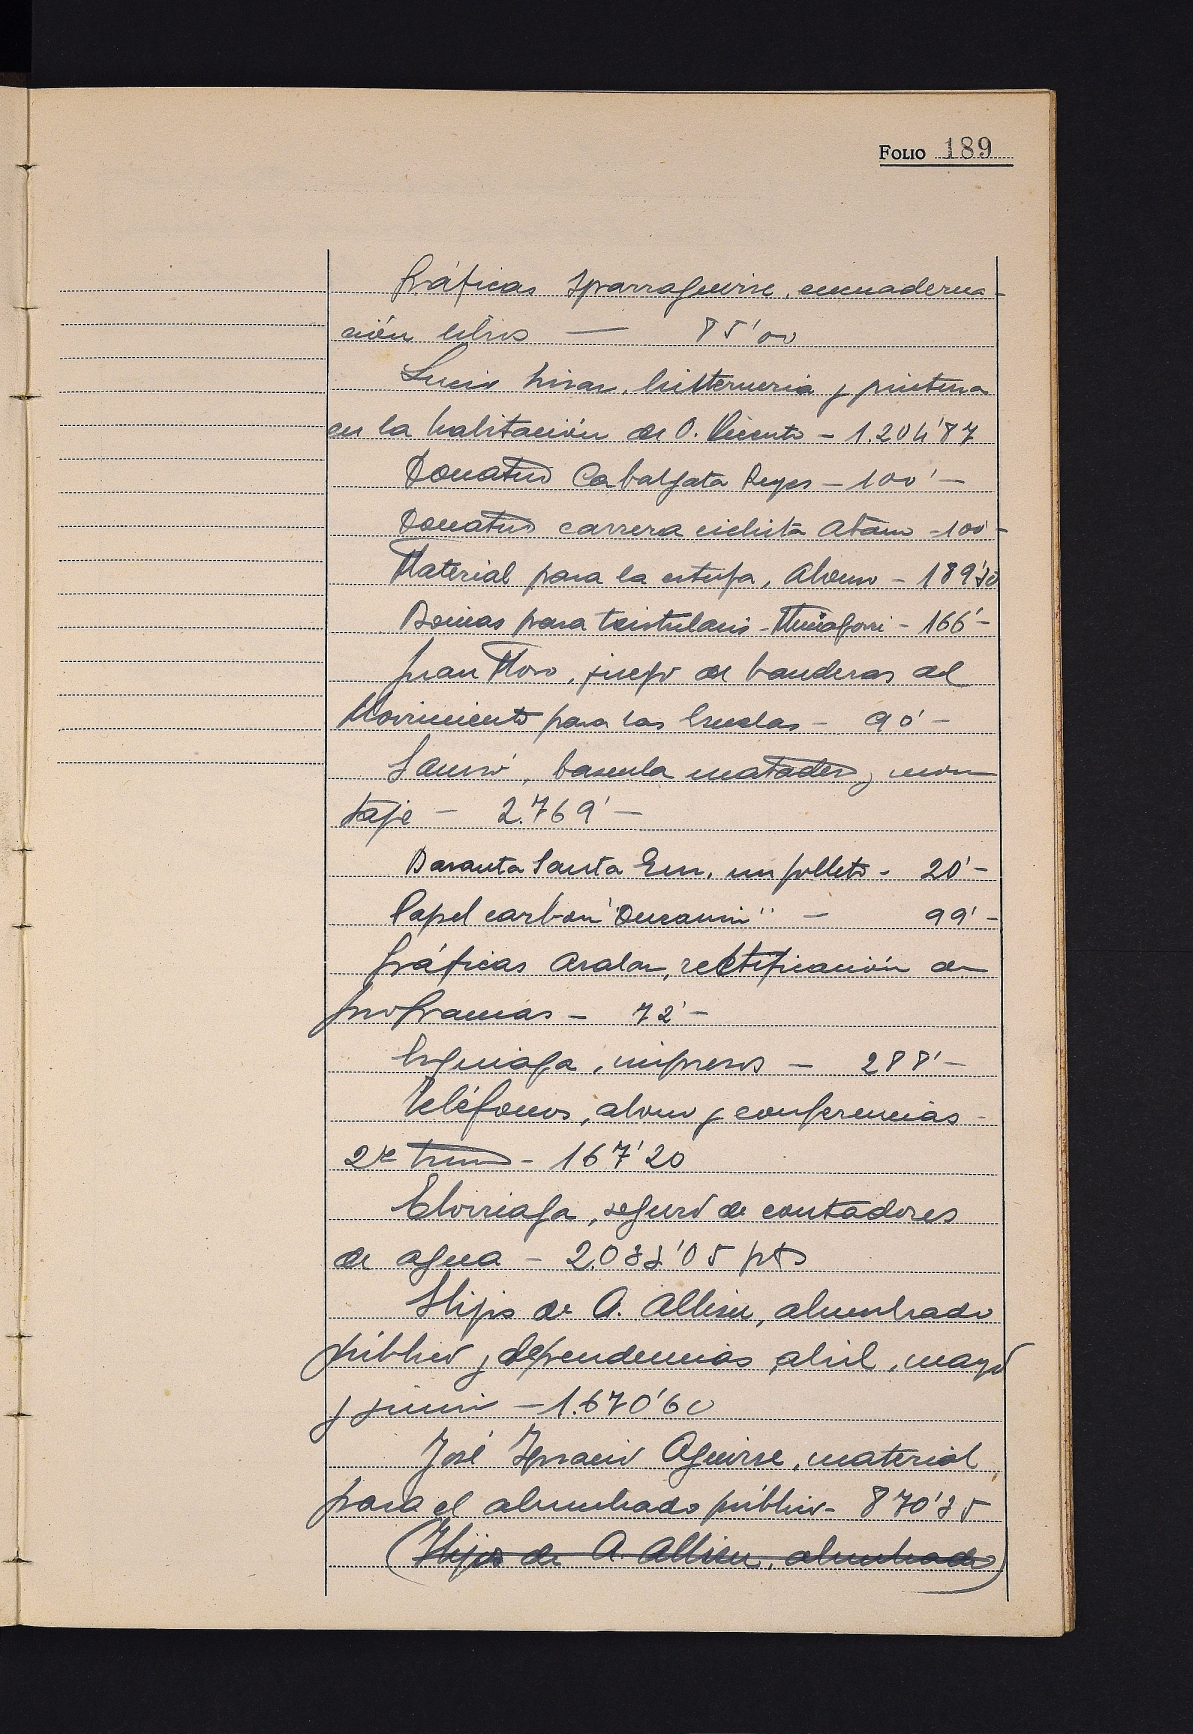 FOLIO 189
Gráficas Yparraguirre, encuaderna-
ción libros — 85'00
Lucio y pintura
en la habitación de D. Vicente - 1.204'87
Donativo Cabalgata Reyes - 100' -
Donativo carrera ciclista Ataun - 100' -
Material para la estufa, Alonso - 189'30
Boinas para txistularis - Muñagorri - 166' -
Juan Moro, juego de banderas del
Movimiento para las Escuelas - 90' -
báscula matadero y mon
taje - 2.769' -
Santa un folleto - 20' -
Papel carbón " " - 99' -
Gráficas Aralar, rectificación de
programas - 72' -
impresos - 288' -
Teléfonos, abono y conferencias -
2º trim - 167'20
Elorriaga, seguro de contadores
de agua - 2.033'05 pts
Hijos de A. Albisu, alumbrado
público y dependencias abril, mayo
y junio - 1.670'60
José Ignacio Aguirre, material
para el alumbrado público - 870'35
(Hijos de A. Albisu, alumbrado)